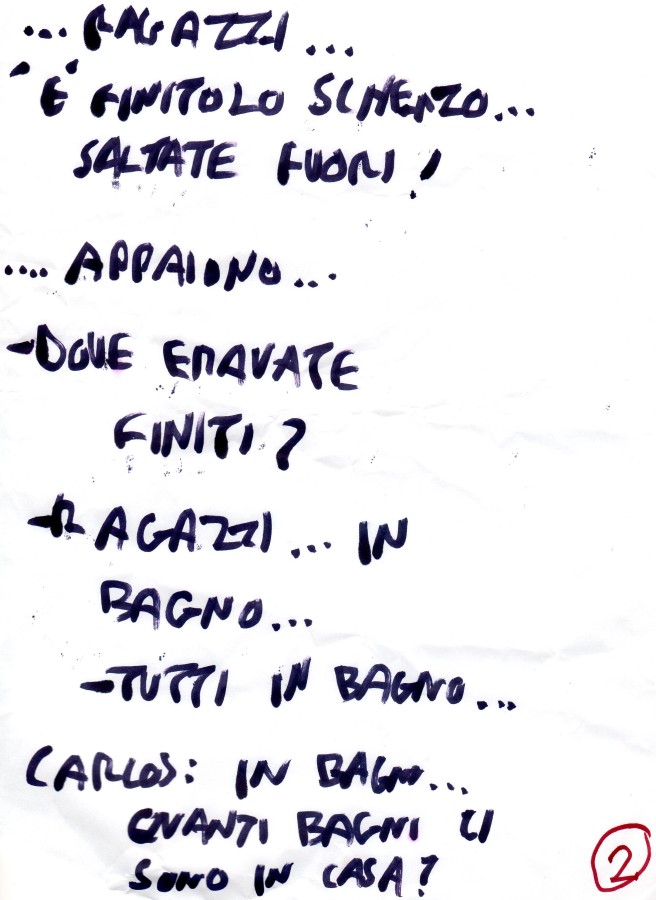 ... RAGAZZI ...
È FINITO LO SCHERZO...
SALTATE FUORI!
.... APPAIONO...
-DOVE ERAVATE
FINITI?
-RAGAZZI ... IN
BAGNO...
-TUTTI IN BAGNO...
CARLOS: IN BAGNO...
QUANTI BAGNI CI
SONO IN CASA?
2